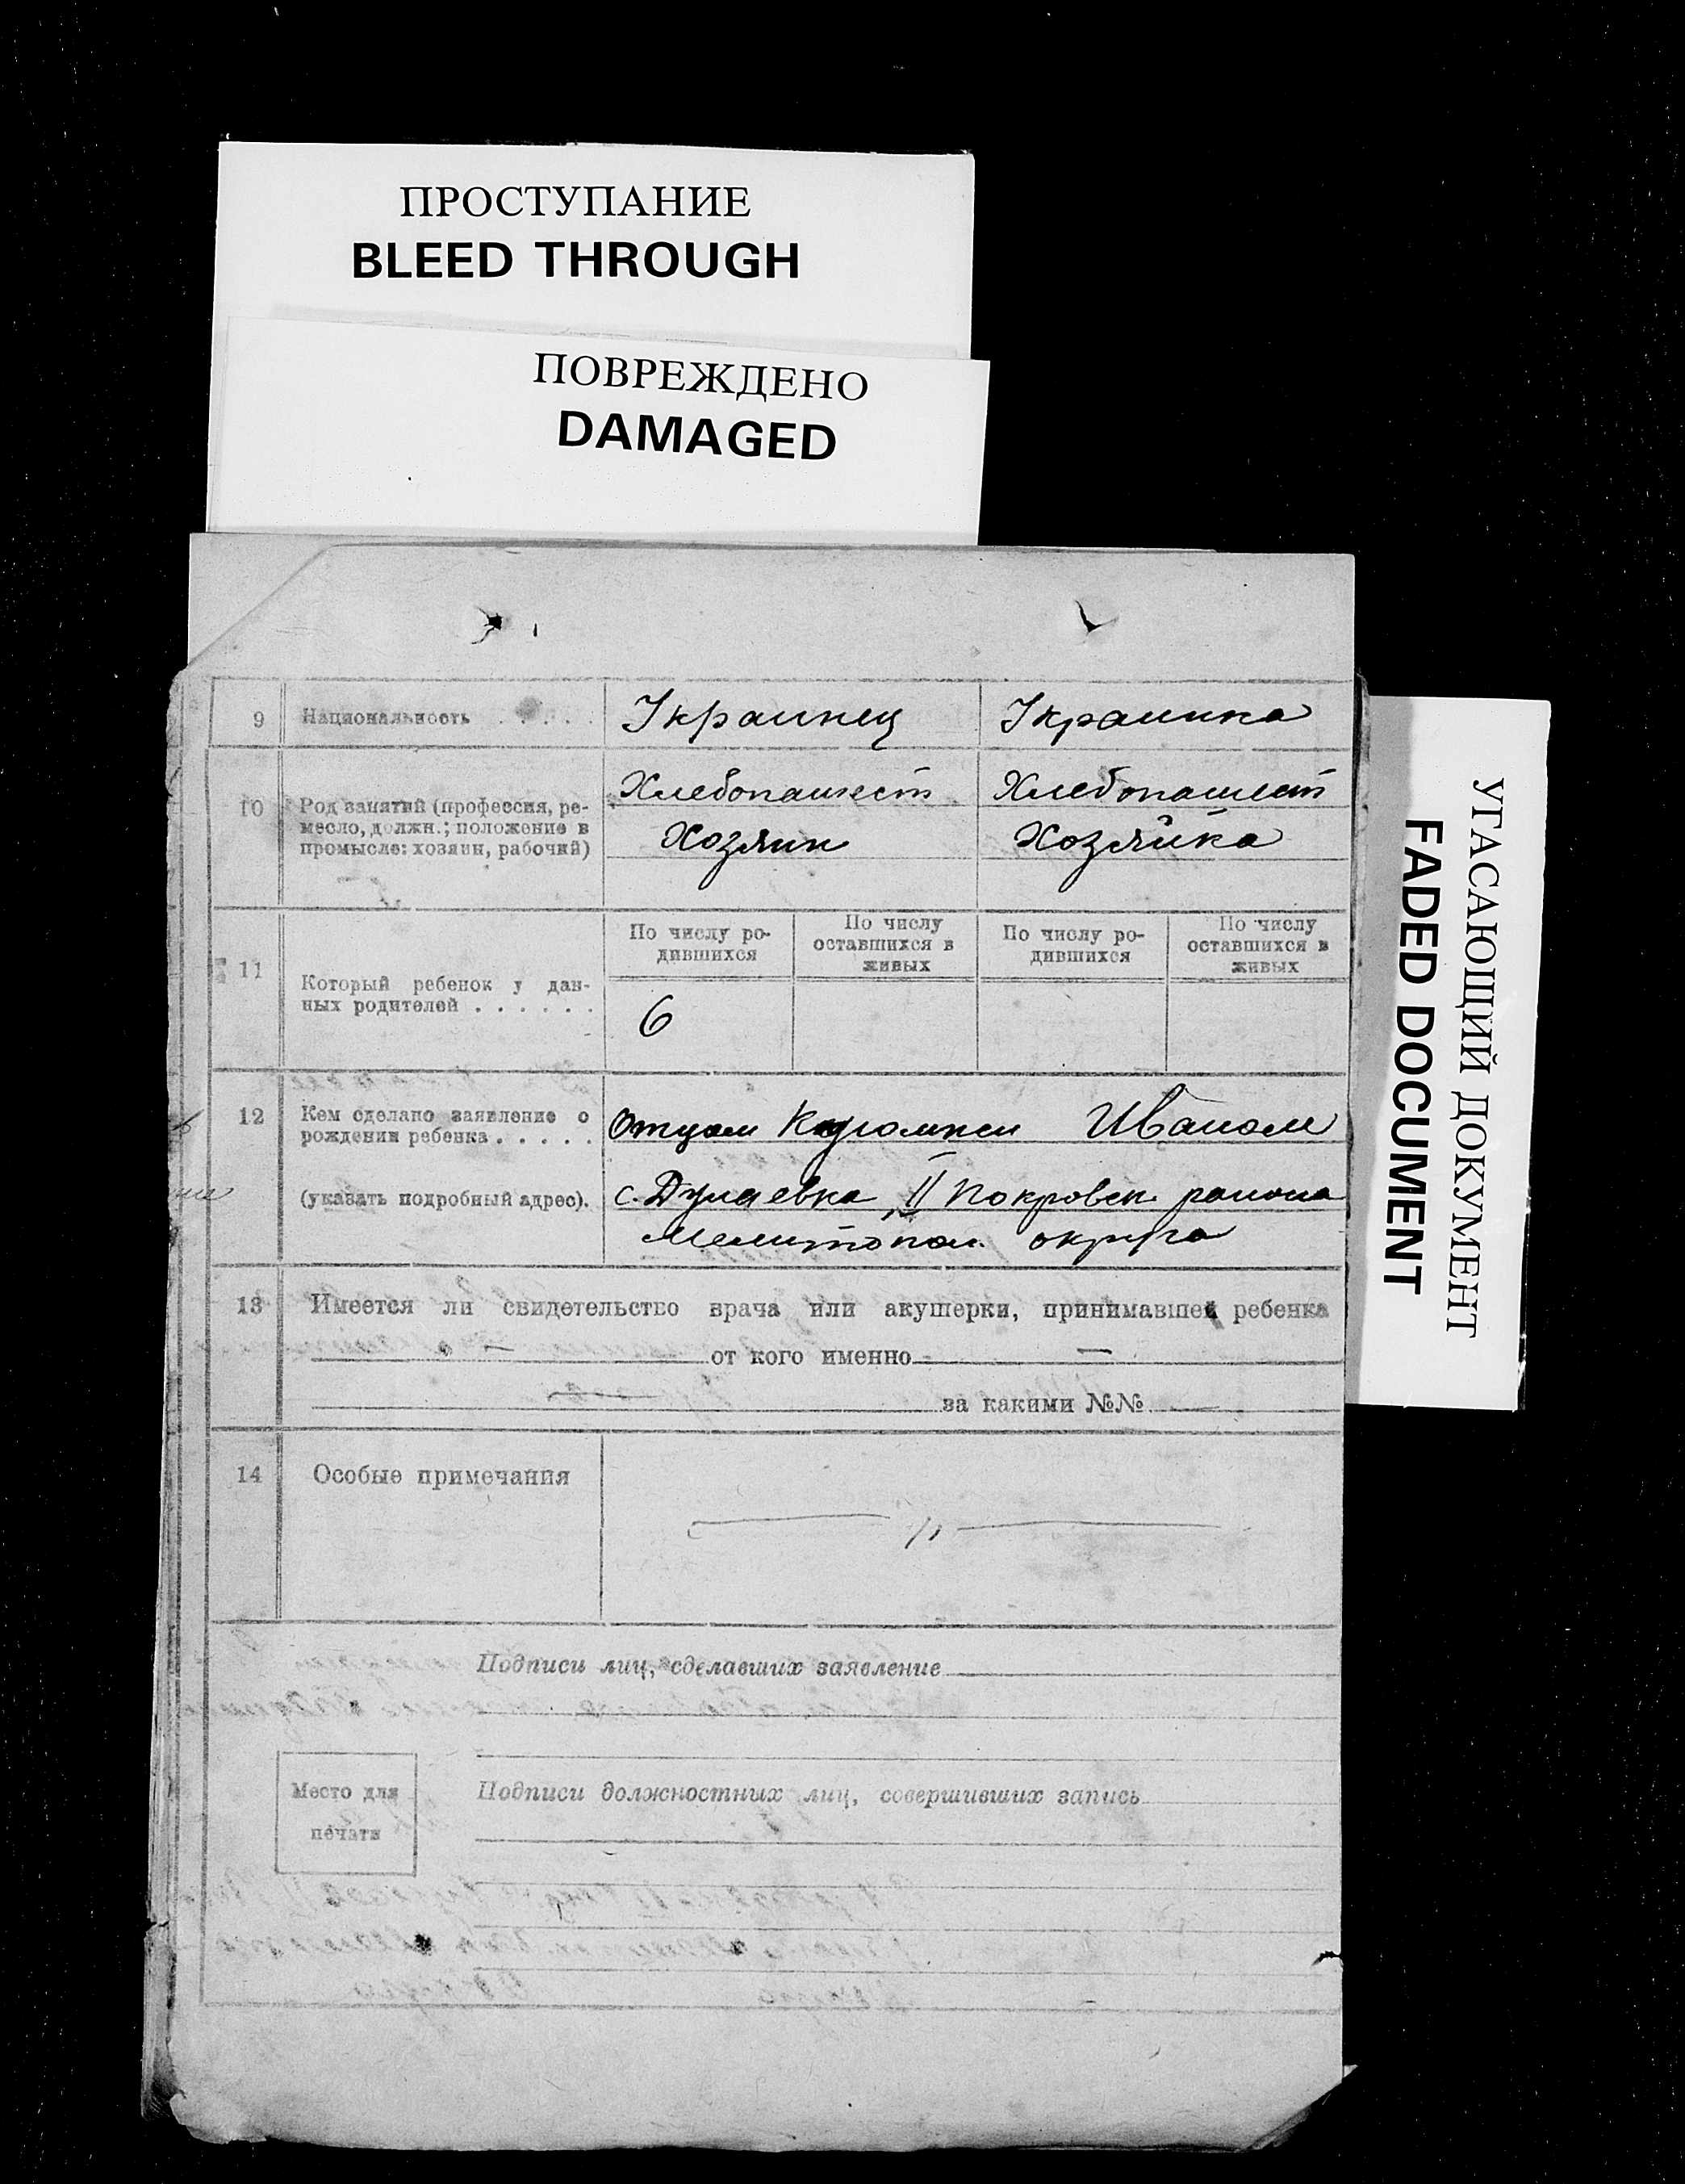 ПРОСТУПАНИЕ
BLEED THROUGH
ПОВРЕЖДЕНО
DAMAGED
УГАСАЮЩИЙ ДОКУМЕНТ
FADED DOCUMENT
9 Национальность . . . . . Украинец Украинка
10 Род занятий (профессия, ре-
месло, должн.; положение в
промысле: хозяин, рабочий)
Хлебопашест Хлебопашест
Хозяин Хозяйка
11 Который ребенок у дан-
ных родителей . . . . . .
По числу ро-
дившихся
По числу
оставшихся в
живых
По числу ро-
дившихся
По числу
оставшихся в
живых
6
12 Кем сделано заявление о
рождении ребенка . . . . .
Отцом Иваном
(указать подробный адрес).
с. II Покровск. района
Мелитопол. округа
13 Имеется ли свидетельство врача или акушерки, принимавшей ребенка
— от кого именно —
— за какими №№ —
14 Особые примечания
Подписи лиц, сделавших заявление
Место для
печати
Подписи должностных лиц, совершивших запись